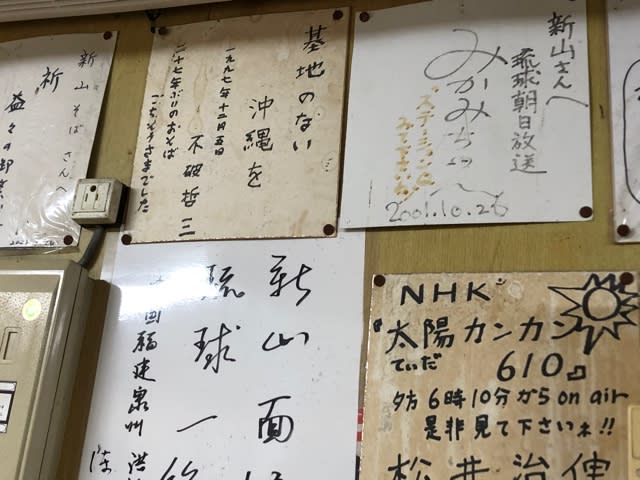 新山そばさんへ
祈
益々の御
基地のない
沖縄を
一九九七年十二月五日
不破哲三
二十七年ぶりのおそば
ごちそうさまでした
新山さんへ
琉球朝日放送
みかみちえ
ステーションQ
2001.10.26
新山面
琉球一
中国福建泉州 洪
陈
NHK
『太陽カンカン
てぃだ 610』
夕方6時10分からon air
是非見て下さいネ!!
松井治伸